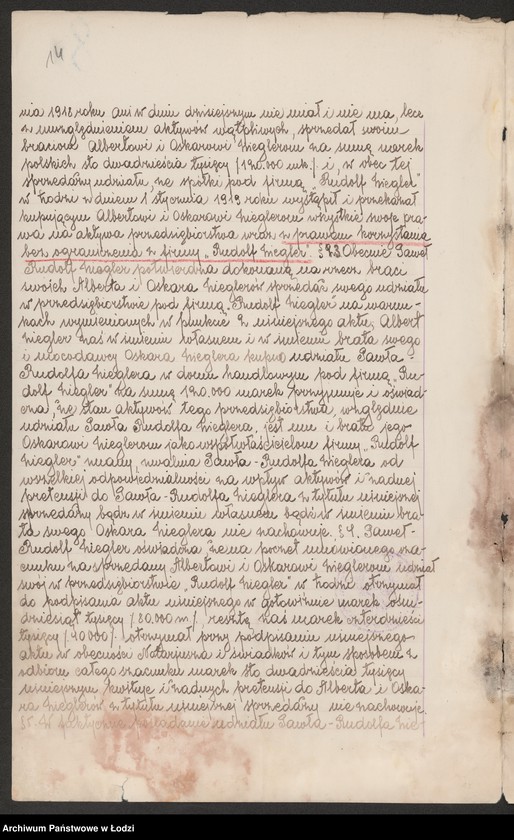 14
nia 1918 roku ani w dniu dzisiejszym nie miał i nie ma, lecz
z uwzględnieniem aktywów wątpliwych, sprzedał swoim
braciom Albertowi i Oskarowi Zieglerom za sumę marek
polskich sto dwadzieścia tysięcy /120.000 mk./ i, w obec tej
sprzedaży udziału, ze spółki pod firmą "Rudolf Ziegler"
w Łodzi z dniem 1 stycznia 1919 roku wystąpił i przekazał
kupującym Albertowi i Oskarowi Zieglerom wszystkie swoje pra-
wa na aktywa przedsiębiorstwa wraz z prawem korzystania
bez ograniczenia z firmy "Rudolf Ziegler". § 3 Obecnie Paweł
Rudolf Ziegler potwierdza dokonaną na rzecz braci
swoich Alberta i Oskara Zieglerów sprzedaż swego udziału
w przedsiębiorstwie pod firmą "Rudolf Ziegler" na warun-
kach wymienionych w punkcie 2 niniejszego aktu, Albert
Ziegler zaś w imieniu własnem i w imieniu brata swego
i mocodawcy Oskara Zieglera kupno udziału Pawła-
Rudolfa Zieglera w domu handlowym pod firmą "Ru-
dolf Ziegler" za sumę 120.000 marek przyjmuje i oświad-
cza, że stan aktywów tego przedsiębiorstwa, względnie
udziału Pawła Rudolfa Zieglera, jest mu i bratu jego
Oskarowi Zieglerom jako współwłaścicielom firmy "Rudolf
Ziegler" znany, zwalnia Pawła-Rudolfa Zieglera od
wszelkiej odpowiedzialności za wpływ aktywów i żadnej
pretensji do Pawła-Rudolfa Zieglera z tytułu niniejszej
sprzedaży bądź w imieniu własnem bądź w imieniu bra-
ta swego Oskara Zieglera nie zachowuje. § 4. Paweł-
Rudolf Ziegler oświadcza że na poczet umówionego sza-
cunku za sprzedany Albertowi i Oskarowi Zieglerom udział
swój w przedsiębiorstwie "Rudolf Ziegler" w Łodzi otrzymał
do podpisania aktu niniejszego w gotowiźnie marek osiem-
dziesiąt tysięcy /80.000 m/, resztę zaś marek czterdzieści
tysięcy /40000/ otrzymał przy podpisaniu niniejszego
aktu w obecności Notarjusza i świadków i tym sposobem z
odbioru całego szacunku marek sto dwadzieścia tysięcy
niniejszym kwituje i żadnych pretensji do Alberta i Oska-
ra Zieglerów z tytułu niniejszej sprzedaży nie zachowuje.
§ 5. W faktyczne posiadanie udziału Pawła-Rudolfa Zie-
Archiwum Państwowe w Łodzi